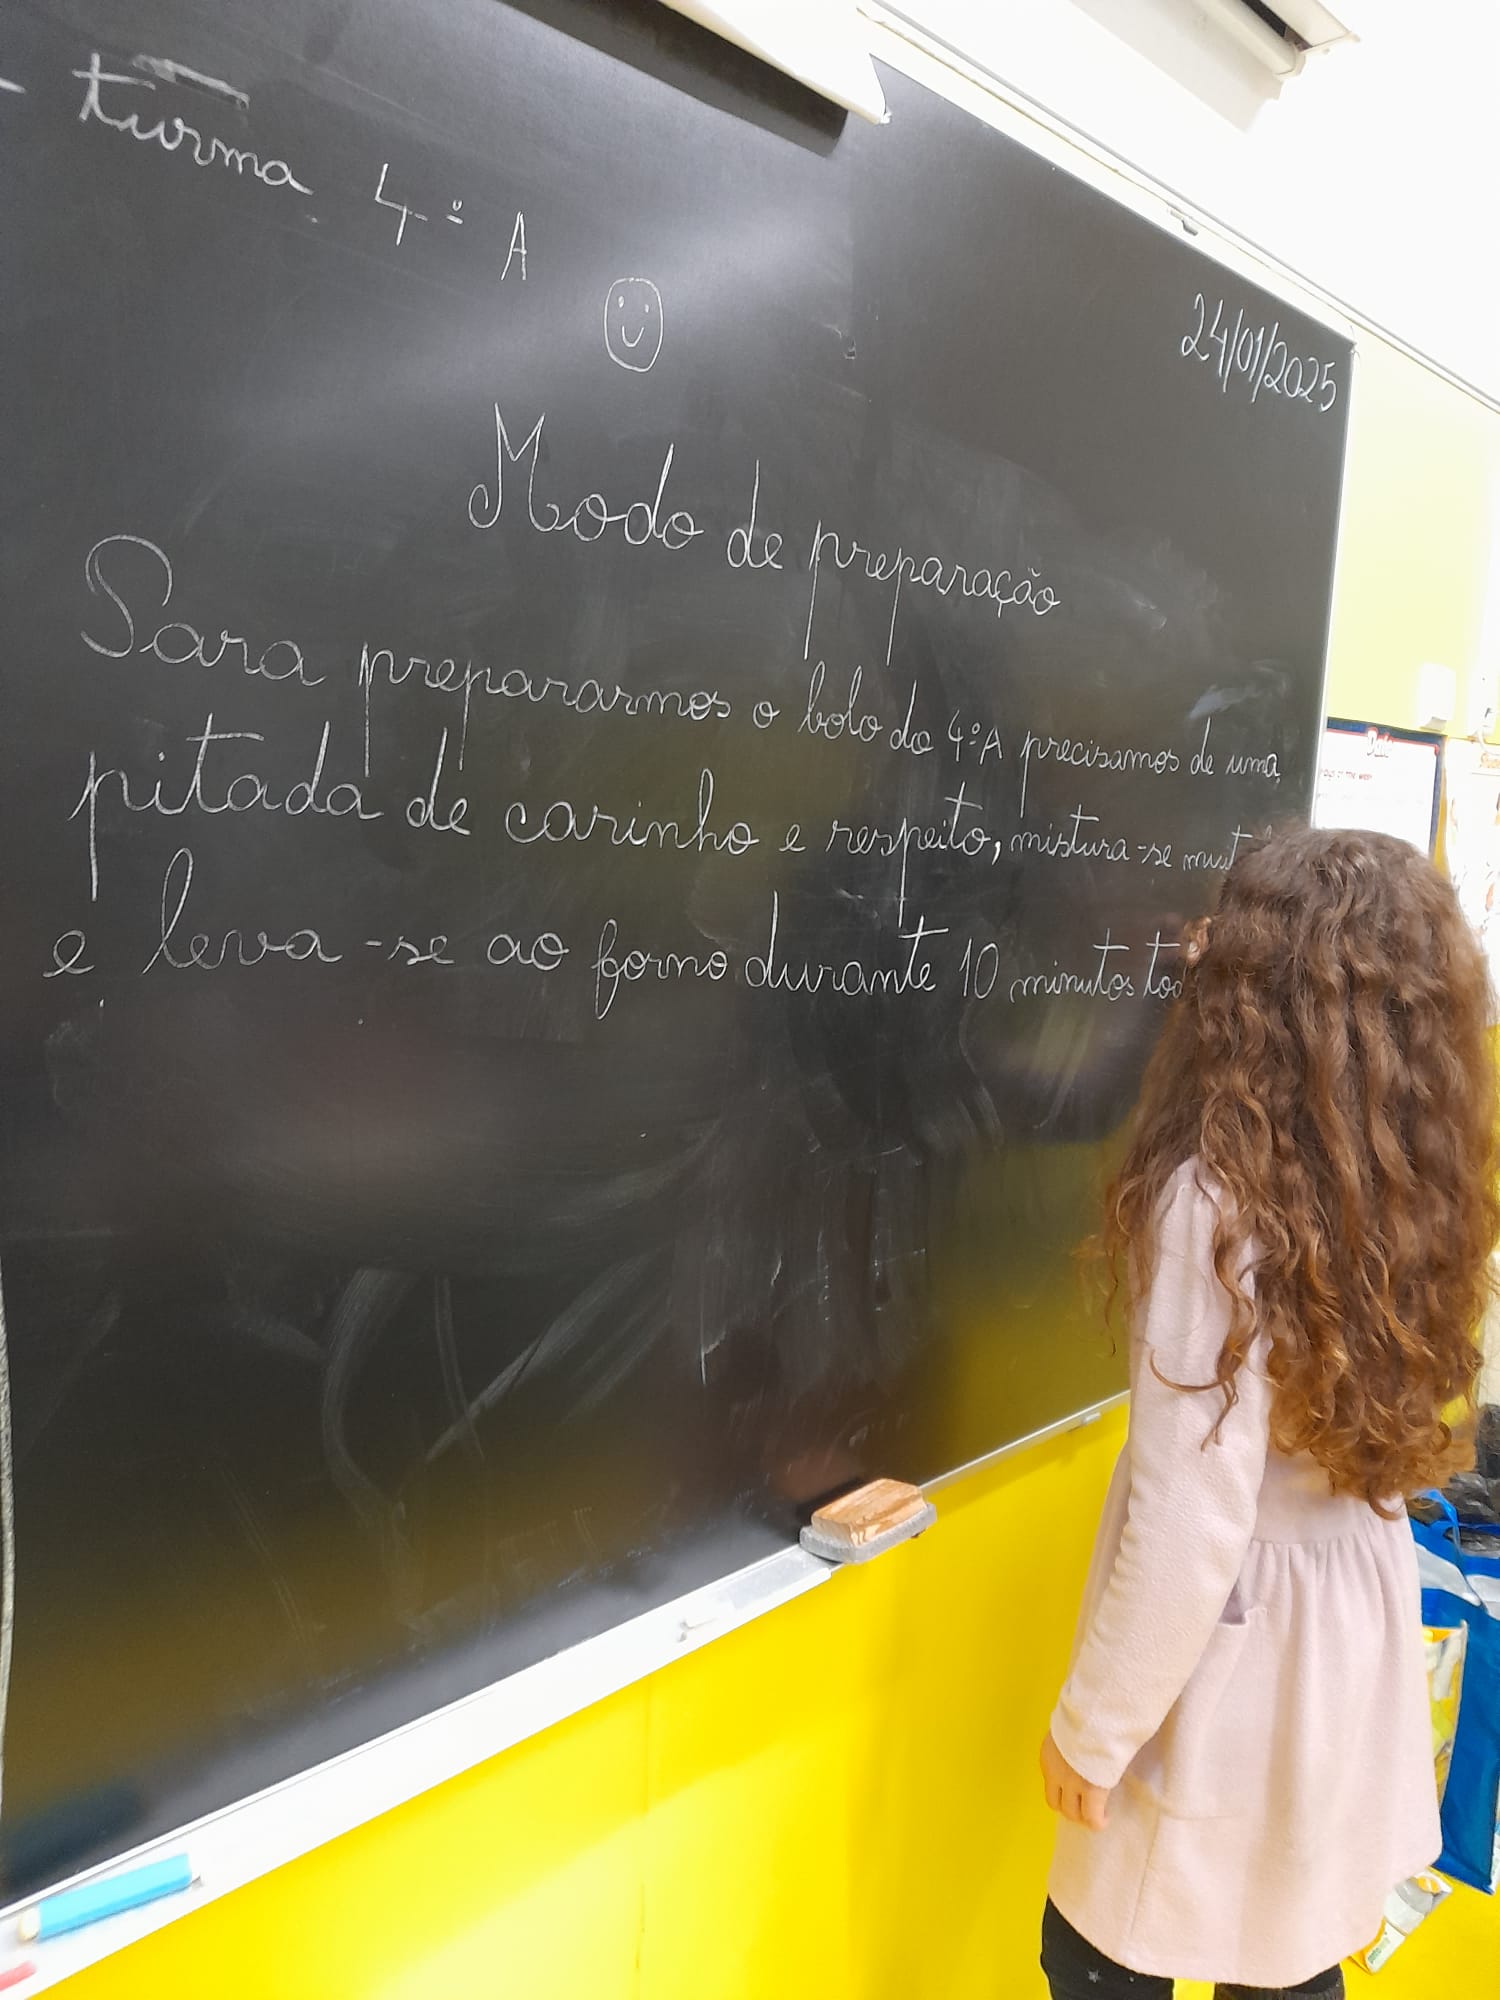 - turma 4.º A
24/01/2025
Modo de preparação
Para prepararmos o bolo do 4ºA precisamos de uma
pitada de carinho e respeito, mistura-se
e leva-se ao forno durante 10 minutos